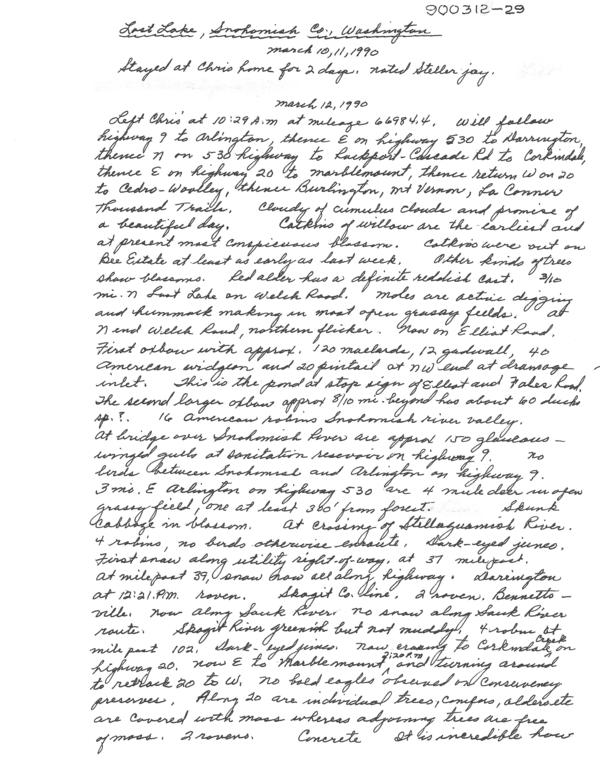 900312-29
Lost Lake, Snohomish Co., Washington
March 10, 11, 1990
Stayed at Chris home for 2 days. noted Steller jay.
March 12, 1990
Left Chris' at 10:29 A.m at mileage 66984.4. Will follow
highway 9 to Arlington, thence E on highway 530 to Darrington,
thence N on 530 highway to Rockport-Cascade Rd to Corkindale,
thence E on highway 20 to marblemount, thence return W on 20
to Cedro-Woolley, thence Burlington, Mt Vernon, La Conner
Thousand Trails. Cloudy of cumulus clouds and promise of
a beautiful day. Catkins of willow are the earliest and
at present most conspicuous blossom. Catkins were out on
Bee Estate at least as early as last week. Other kinds of trees
show blossoms. Red alder has a definite reddish cast. 3/10
mi. N Lost Lake on Welch Road. Moles are active digging
and hummock making in most open grassy fields. At
N end Welch Road, northern flicker. Now on Elliot Road.
First oxbow with approx. 120 mallards, 12 gadwall, 40
American widgeon and 20 pintail at NW end at drainage
inlet. This is the pond at stop sign of Elliot and Fales Road.
The second larger oxbow approx 8/10 mi. beyond has about 60 ducks
sp.?. 16 American robins Snohomish river valley.
At bridge over Snohomish River are approx 150 glaucous-
winged gulls at sanitation resevoir on highway 9. no
birds between Snohomish and Arlington on highway 9.
3 mi. E Arlington on highway 530 are 4 mule deer in open
grassy field, one at least 300' from forest. Skunk
Cabbage in blossom. At crossing of Stillaguamish River.
4 robins, no birds otherwise enroute. Dark-eyed junco.
First snow along utility right-of-way. at 37 milepost.
At milepost 39, snow now all along highway. Darington
at 12:21 P.M. raven. Skagit Co. line. 2 raven. Bennetts-
ville. Now along Sauk River. no snow along Sauk River
route. Skagit River greenish but not muddy. 4 robin at
mile post 102. Dark-eyed junco. Now crossing to Corkindale Creek on
highway 20. now E to Marblemount, 2:20 P.M and turning around
to retrack 20 to W. No bald eagles observed on Conservancy
preserve. Along 20 are individual trees, conifers, alders etc
are covered with moss whereas adjoining trees are free
of moss. 2 ravens. Concrete It is incredible how